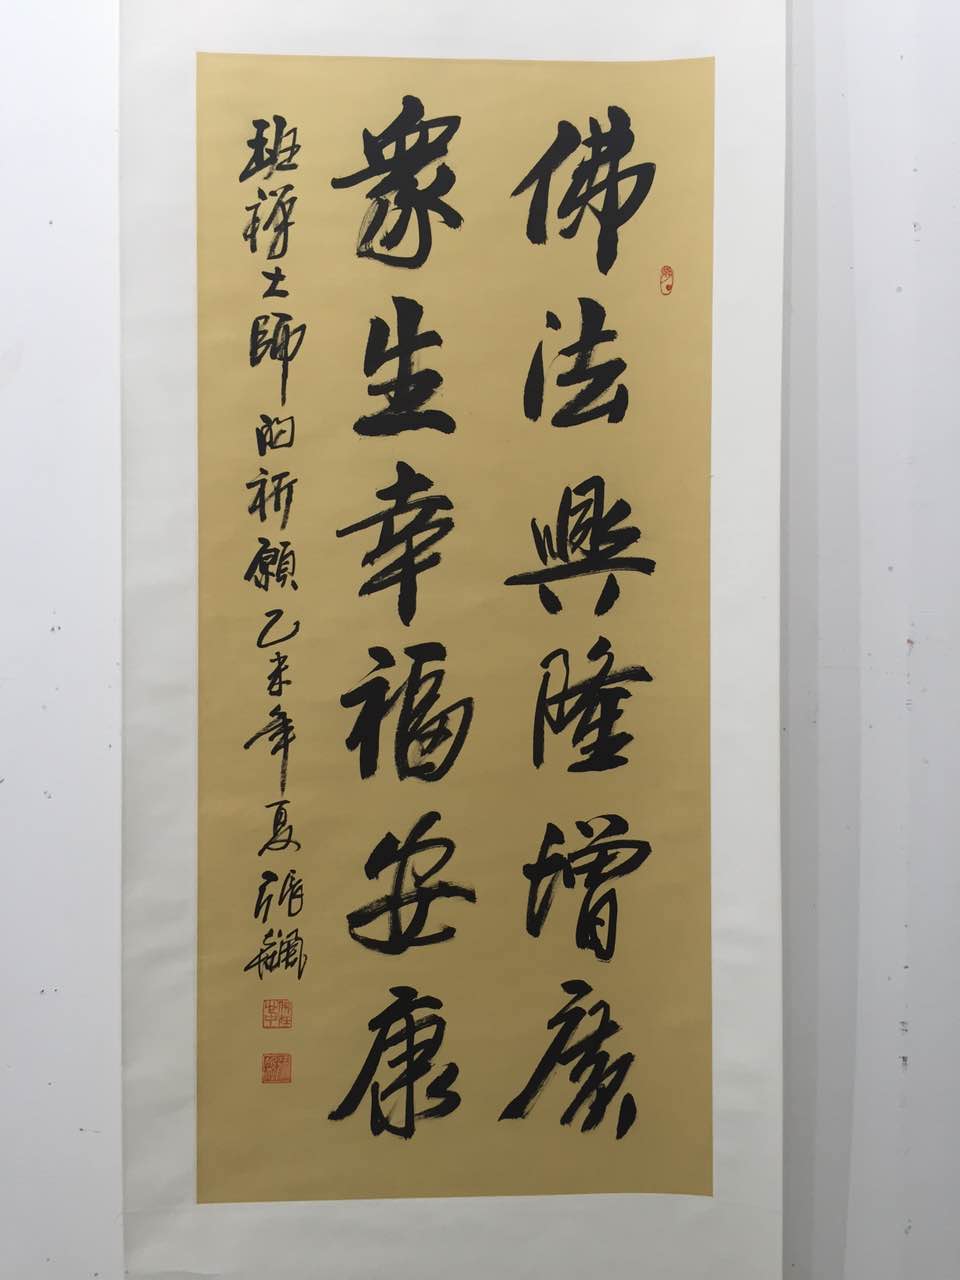 佛法興隆增廣
衆生幸福安康
班禪大師的祈願乙未年夏張飆